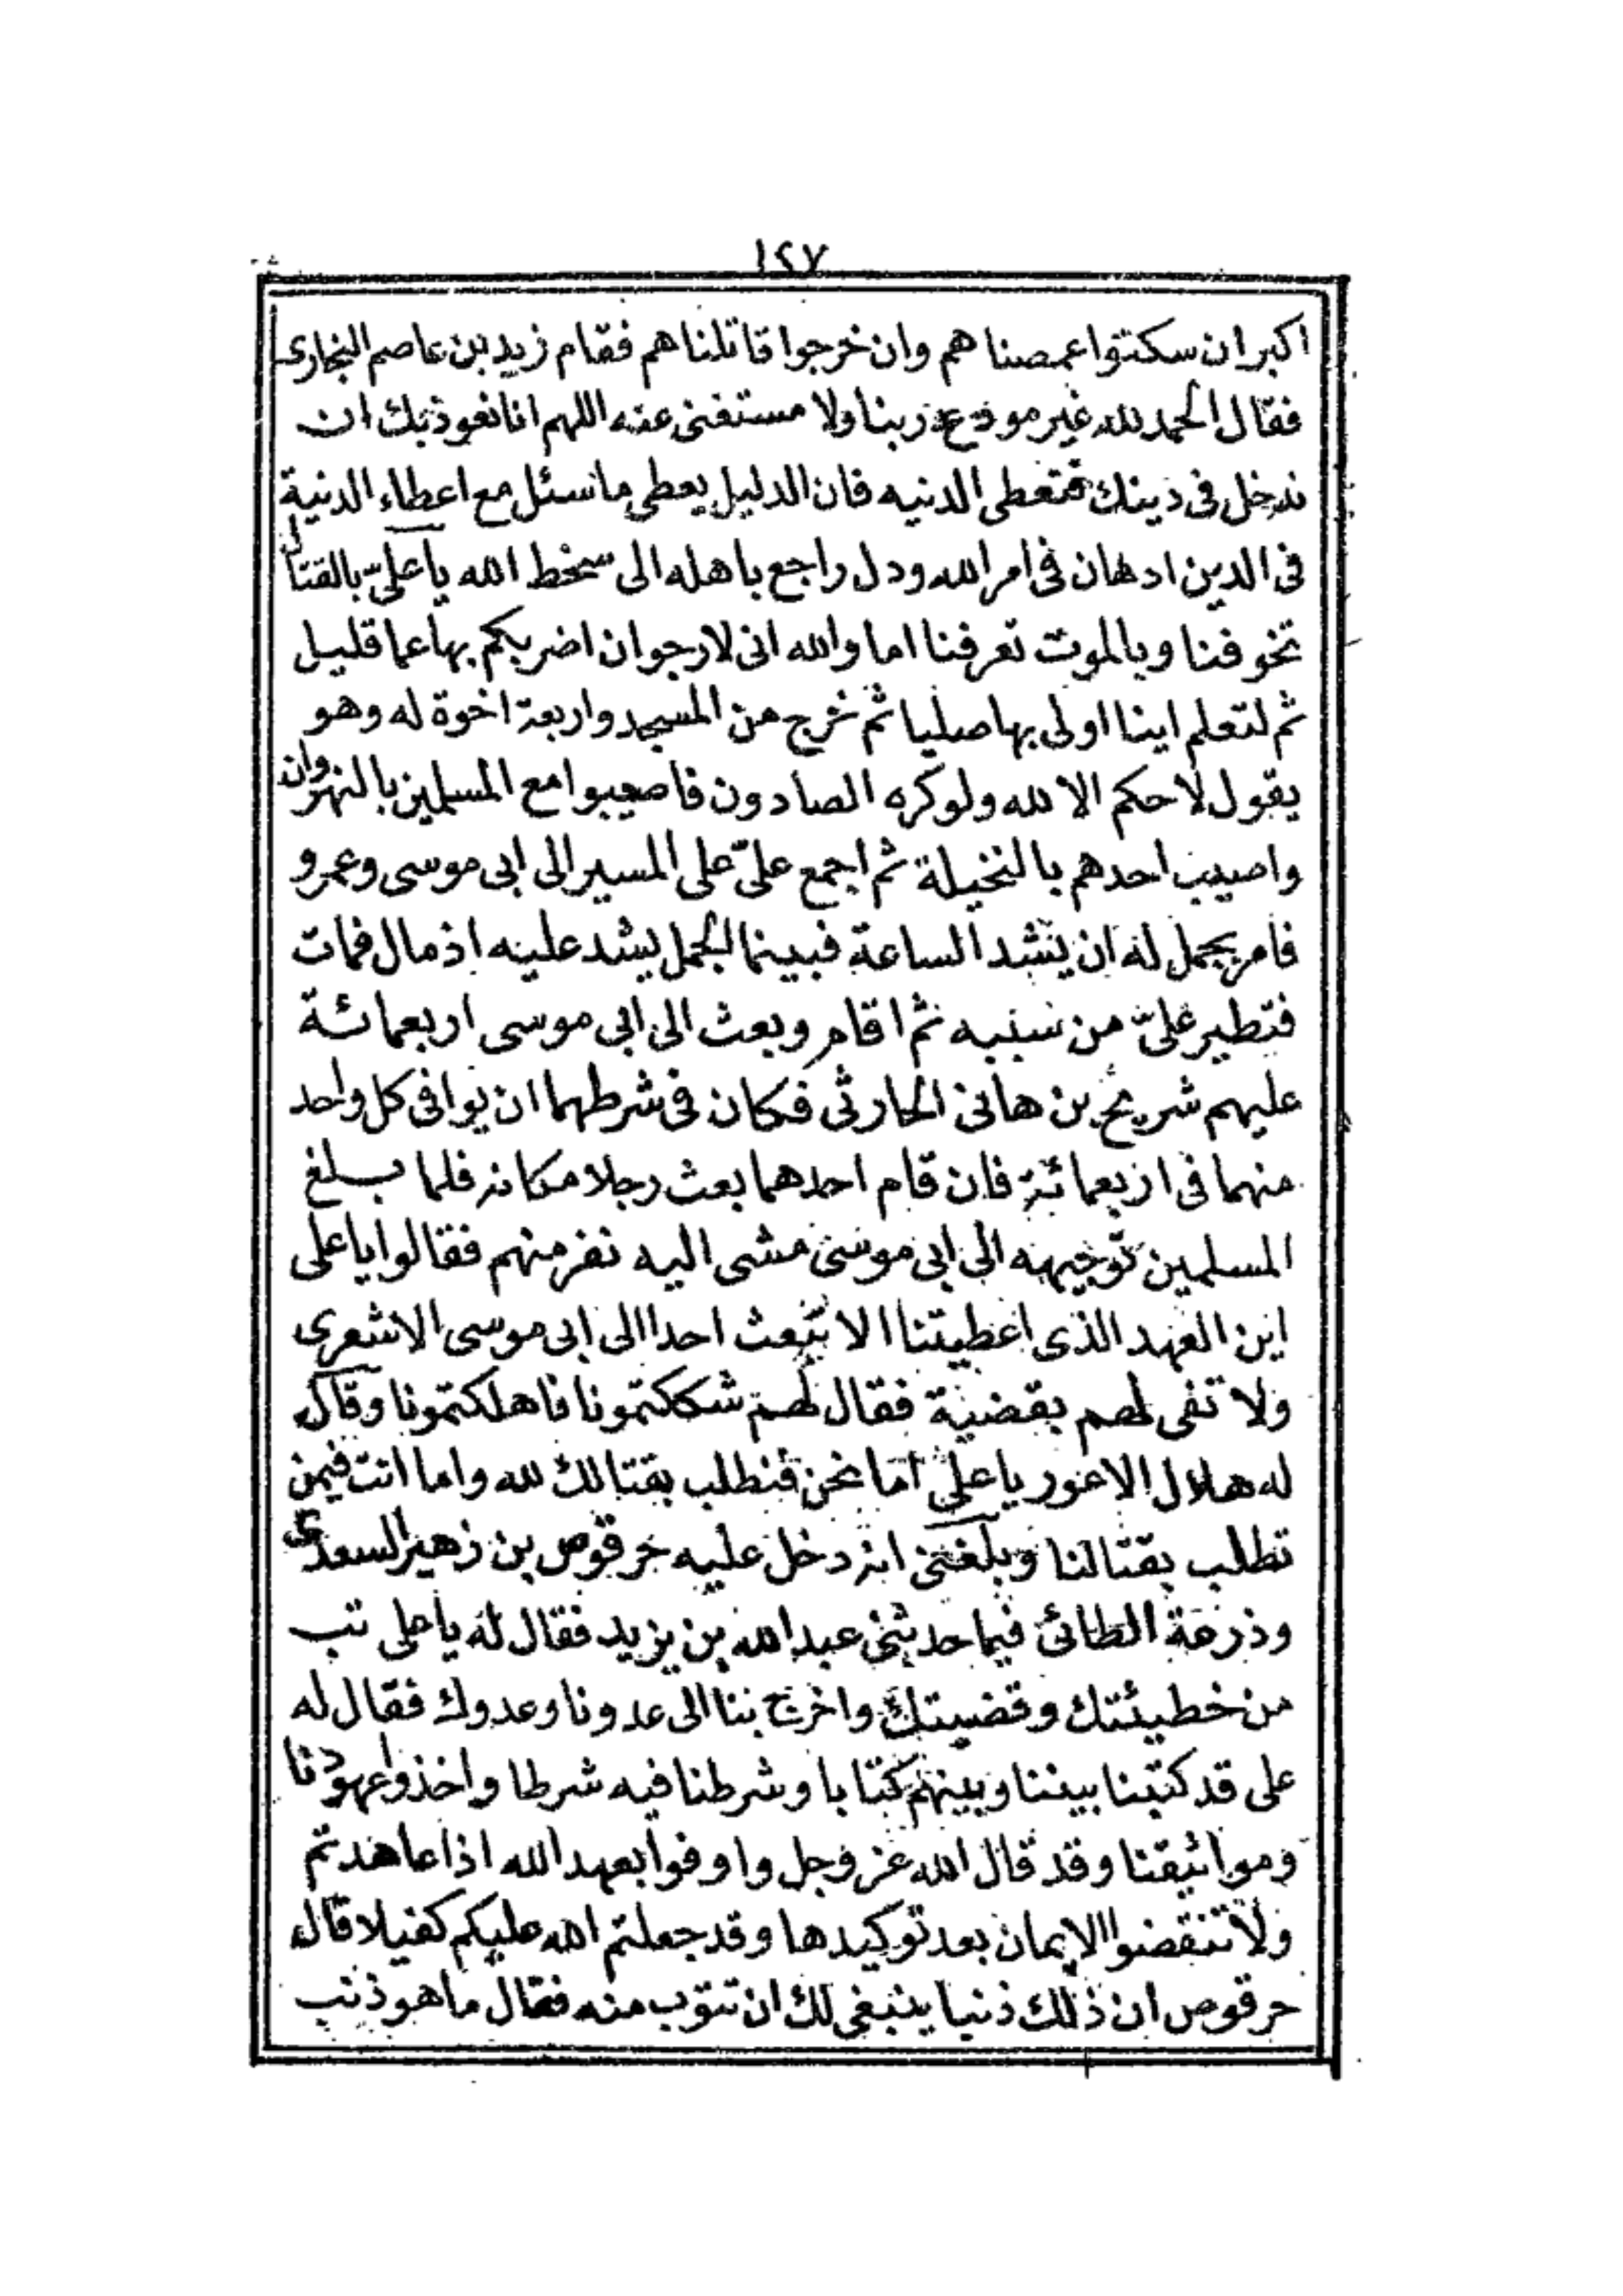 ١٢٧
اكبر ان سكتوا عمصناهم وان خرجوا قاتلناهم فقام زيد بن عاصم النجارى
فقال الحمد لله غير مودع ربنا ولا مستغنى عنه اللهم انا نعوذ بك ان
ندخل فى دينك فتعطى الدنيه فان الدليل يعطى ما سئل مع اعطاء الدنية
فى الدين ادهان فى امر الله ودل راجع باهله الى سخط الله يا علىّ بالقتال
تخوفنا وبالموت تعرفنا اما والله انى لارجوان اضربكم بها عما قليل
ثم لتعلم اينا اولى بها صليا ثم خرج من المسجد واربعة اخوة له وهو
يقول لاحكم الا لله ولوكره الصادون فاصيبوا مع المسلمين بالنهروان
واصيب احدهم بالنخيلة ثم اجمع علىّ على المسير الى ابى موسى وعمرو
فامر بجمل له ان يشد الساعة فبينما الجمل يشد عليه اذ مال فمات
فتطير علىّ من سببه ثم اقام وبعث الى ابى موسى اربعمائة
عليهم شريح بن هانئ الحارثى فكان فى شرطهما ان يوافى كل واحد
منهما فى اربعمائة فان قام احدهما بعث رجلا مكانه فلما بلغ
المسلمين توجيهه الى ابى موسى مشى اليه نفر منهم فقالوا يا على
اين العهد الذى اعطيتنا الا تبعث احدا الى ابى موسى الاشعرى
ولا تفى لهم بقضية فقال لهم شككتمونا فاهلكتمونا وقال
له هلال الاعور يا على اما نحن فنطلب بقتالك لله واما انت فيمن
تطلب بقتالنا وبلغنى انه دخل عليه حرقوص بن زهير السعدى
وذرعة الطائى فيما حدثنى عبد الله بن يزيد فقال له يا على تب
من خطيئتك وقضيتك واخرج بنا الى عدونا وعدوك فقال له
على قد كتبنا بيننا وبينهم كتابا وشرطنا فيه شرطا واخذوا عهودنا
ومواثيقنا وقد قال الله عز وجل واوفوا بعهد الله اذا عاهدتم
ولا تنقضوا الايمان بعد توكيدها وقد جعلتم الله عليكم كفيلا قال
حرقوص ان ذلك ذنبا ينبغى لك ان تتوب منه فقال ما هو ذنب